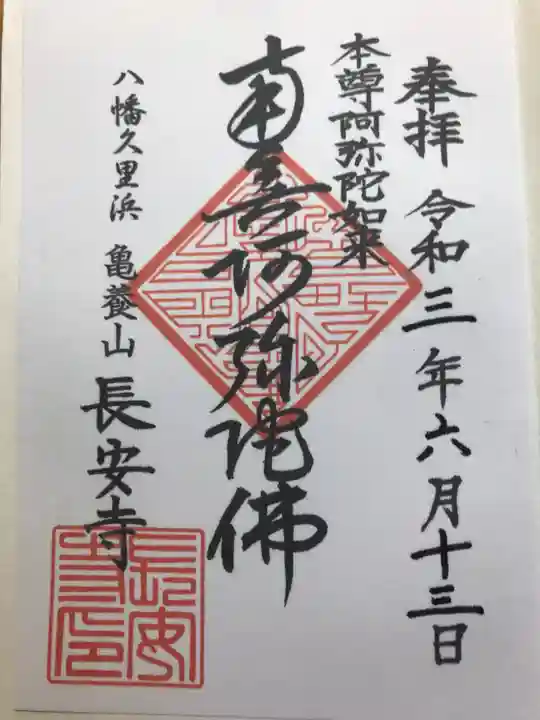 奉拝 令和三年六月十三日
本尊阿弥陀如来
南無阿弥陀佛
八幡久里浜 亀養山 長安寺
長安寺印